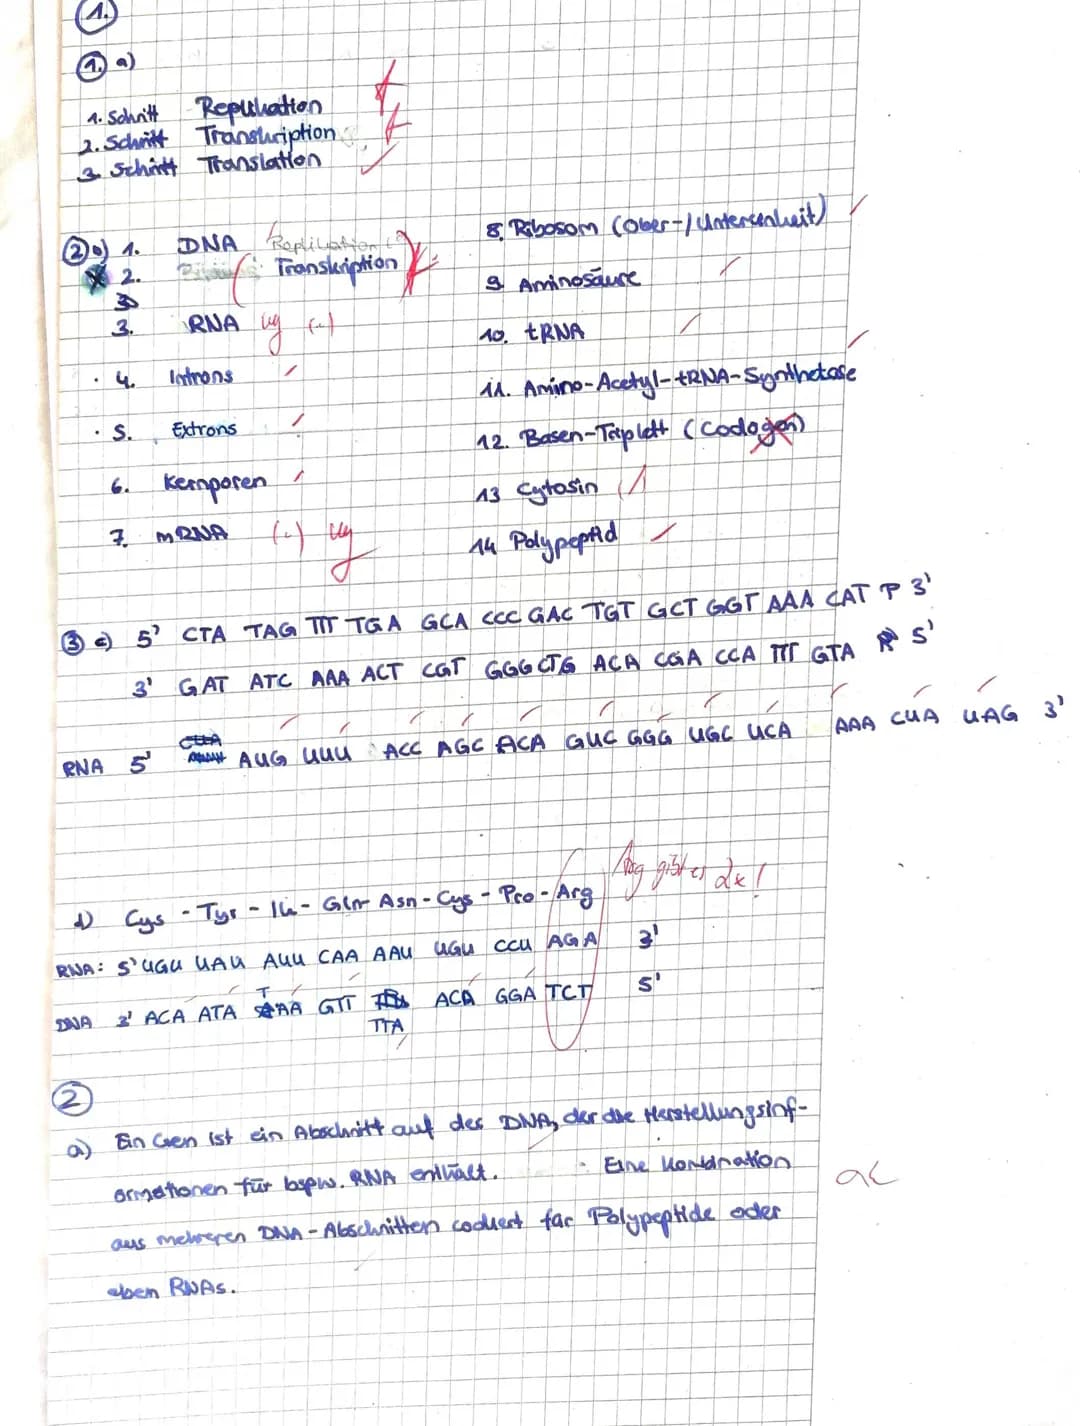 1.
1. a)
1. Schritt Replikation
2. Schritt Transkription
3. Schritt Translation
2 b) 1. DNA Replikation
2. Transkription
3.
3. RNA ug (-)
4. Introns
5. Extrons
6. Kernporen
7. mRNA (-) ug
8. Ribosom (Ober-/Untereinheit)
9. Aminosäure
10. tRNA
11. Amino-Acetyl-tRNA-Synthetase
12. Basen-Triplett (Codogen)
13 Cytosin
14 Polypeptid
3 c) 5' CTA TAG TTT TGA GCA CCC GAC TGT GCT GGT AAA CAT P 3'
3' GAT ATC AAA ACT CGT GGG CTG ACA CGA CCA TTT GTA 5'
RNA 5' AUG UUU ACC AGC ACA GUC GGG UGC UCA AAA CUA UAG 3'
Arg gibt es 2x!
d) Cys - Tyr - Ile - Gln - Asn - Cys - Pro - Arg
RNA: 5' UGU UAU AUU CAA AAU UGU CCU AGA 3'
DNA 3' ACA ATA TAA GTT ACA GGA TCT 5'
TTA
2
a) Ein Gen ist ein Abschnitt auf der DNA, der die Herstellungsinf-
ormationen für bspw. RNA enthält. Eine Kombination
aus mehreren DNA-Abschnitten codiert für Polypeptide oder
eben RNAs.